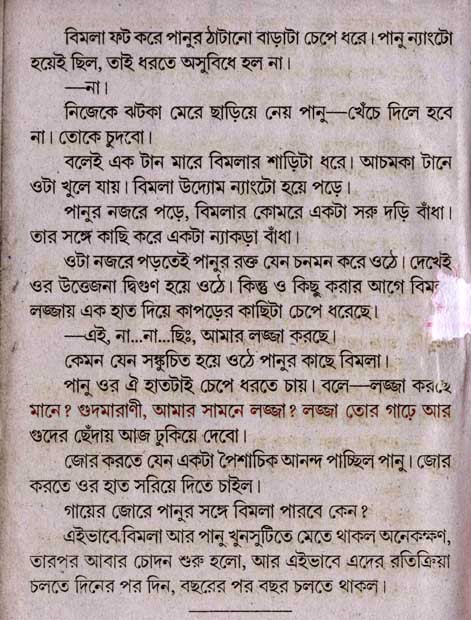 বিমলা ফট করে পানুর ঠাটানো বাড়াটা চেপে ধরে। পানু ন্যাংটো
হয়েই ছিল, তাই ধরতে অসুবিধে হল না।
—না।
নিজেকে ঝটকা মেরে ছাড়িয়ে নেয় পানু—খেঁচে দিলে হবে
না। তোকে চুদবো।
বলেই এক টান মারে বিমলার শাড়িটা ধরে। আচমকা টানে
ওটা খুলে যায়। বিমলা উদ্যোম ন্যাংটো হয়ে পড়ে।
পানুর নজরে পড়ে, বিমলার কোমরে একটা সরু দড়ি বাঁধা।
তার সঙ্গে কাছি করে একটা ন্যাকড়া বাঁধা।
ওটা নজরে পড়তেই পানুর রক্ত যেন চনমন করে ওঠে। দেখেই
ওর উত্তেজনা দ্বিগুণ হয়ে ওঠে। কিন্তু ও কিছু করার আগে
লজ্জায় এক হাত দিয়ে কাপড়ের কাছিটা চেপে ধরেছে।
—এই, না...না...ছিঃ, আমার লজ্জা করছে।
কেমন যেন সঙ্কুচিত হয়ে ওঠে পানুর কাছে বিমলা।
পানু ওর ঐ হাতটাই চেপে ধরতে চায়। বলে—লজ্জা করছে
মানে? গুদমারাণী, আমার সামনে লজ্জা? লজ্জা তোর গাঢ়ে আর
গুদের ছেঁদায় আজ ঢুকিয়ে দেবো।
জোর করতে যেন একটা পৈশাচিক আনন্দ পাচ্ছিল পানু। জোর
করতে ওর হাত সরিয়ে দিতে চাইল।
গায়ের জোরে পানুর সঙ্গে বিমলা পারবে কেন?
এইভাবে বিমলা আর পানু খুনসুটিতে মেতে থাকল অনেকক্ষণ,
তারপর আবার চোদন শুরু হলো, আর এইভাবে এদের রতিক্রিয়া
চলতে দিনের পর দিন, বছরের পর বছর চলতে থাকল।